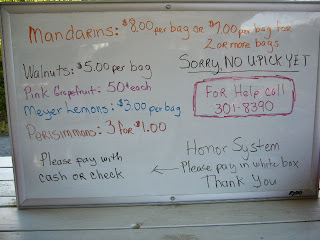 Mandarins: $8.00 per bag or $7.00 per bag for
2 or more bags
Walnuts: $5.00 per bag
SORRY, NO UPICK YET
Pink Grapefruit: 50¢ each
Meyer Lemons: $3.00 per bag
Persimmons: 3 for $1.00
For Help call
301-8390
Please pay with
cash or check
Honor System
← Please pay in white box
Thank You